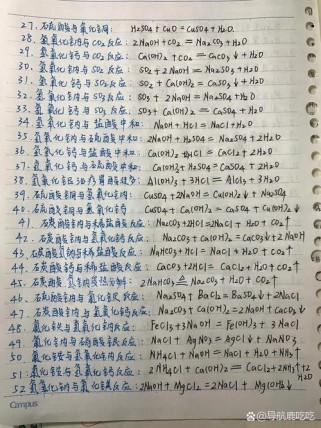 27. 硫酸与氧化铜: H₂SO₄ + CuO = CuSO₄ + H₂O.
28. 氢氧化钠与CO₂反应: 2NaOH + CO₂ = Na₂CO₃ + H₂O
29. 氢氧化钙与CO₂反应: Ca(OH)₂ + CO₂ = CaCO₃↓ + H₂O
30. 氢氧化钠与SO₂反应: SO₂ + 2NaOH = Na₂SO₃ + H₂O
31. 氢氧化钙与SO₂反应: SO₂ + Ca(OH)₂ = CaSO₃↓ + H₂O.
32. 氢氧化钠与SO₃反应: SO₃ + 2NaOH = Na₂SO₄ + H₂O
33. 氢氧化钙与SO₃反应: SO₃ + Ca(OH)₂ = CaSO₄ + H₂O
34. 氢氧化钠与盐酸中和: NaOH + HCl = NaCl + H₂O
35. 氢氧化钠与硫酸中和: 2NaOH + H₂SO₄ = Na₂SO₄ + 2H₂O
36. 氢氧化钙与盐酸中和: Ca(OH)₂ + 2HCl = CaCl₂ + 2H₂O
37. 氢氧化钙与硫酸中和: Ca(OH)₂ + H₂SO₄ = CaSO₄ + 2H₂O
38. 氢氧化铝治疗胃酸过多: Al(OH)₃ + 3HCl = AlCl₃ + 3H₂O
39. 硫酸铜与氢氧化钠: CuSO₄ + 2NaOH = Cu(OH)₂↓ + Na₂SO₄
40. 硫酸铜与氢氧化钙: CuSO₄ + Ca(OH)₂ = CaSO₄ + Cu(OH)₂↓
41. 碳酸钠与稀盐酸反应: Na₂CO₃ + 2HCl = 2NaCl + H₂O + CO₂↑
42. 碳酸钠与氢氧化钙反应: Na₂CO₃ + Ca(OH)₂ = CaCO₃↓ + 2NaOH
43. 碳酸氢钠与稀盐酸反应: NaHCO₃ + HCl = NaCl + H₂O + CO₂↑
44. 碳酸钙与稀盐酸反应: CaCO₃ + 2HCl = CaCl₂ + H₂O + CO₂↑
45. 碳酸氢钠受热分解: 2NaHCO₃ = Na₂CO₃ + H₂O + CO₂↑
46. 硫酸钠与氯化钡反应: Na₂SO₄ + BaCl₂ = BaSO₄↓ + 2NaCl
47. 碳酸钠与氢氧化钙反应: Na₂CO₃ + Ca(OH)₂ = 2NaOH + CaCO₃↓
48. 氯化铁与氢氧化钠反应: FeCl₃ + 3NaOH = Fe(OH)₃ + 3NaCl
49. 氯化钠与硝酸银反应: NaCl + AgNO₃ = AgCl↓ + NaNO₃
50. 氯化铵与氢氧化钠反应: NH₄Cl + NaOH = NaCl + H₂O + NH₃↑
51. 氯化铵与氢氧化钙反应: 2NH₄Cl + Ca(OH)₂ = CaCl₂ + 2NH₃↑ + 2H₂O
52. 氢氧化钠与氯化镁反应: 2NaOH + MgCl₂ = 2NaCl + Mg(OH)₂↓
Campus
@导航鹿吃吃